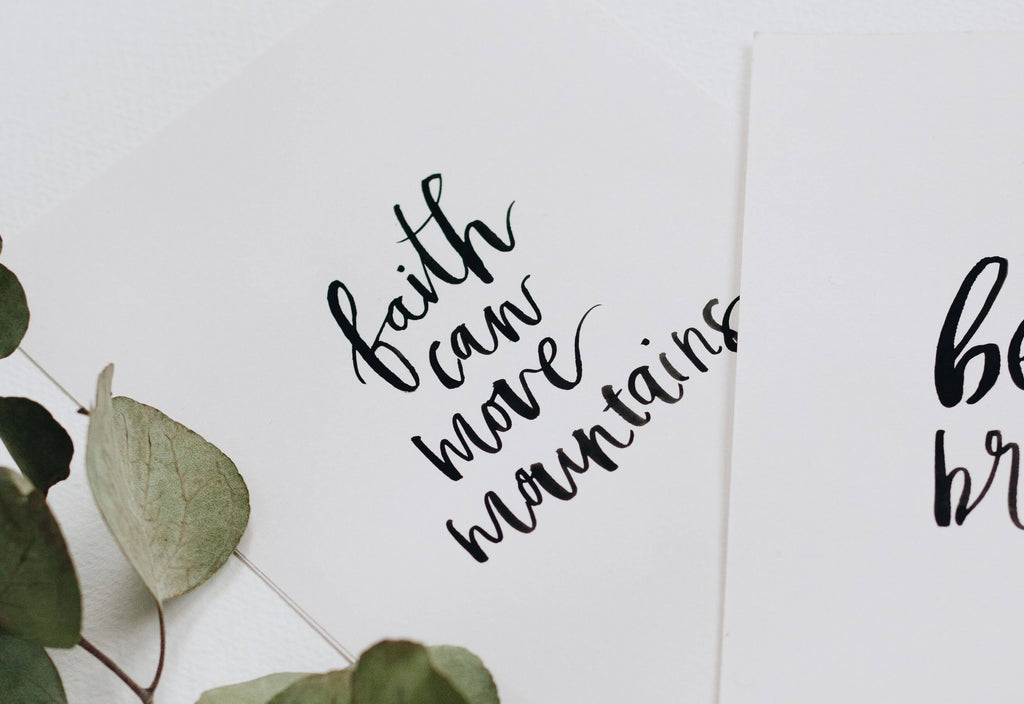 faith
can
move
mountains
be
br